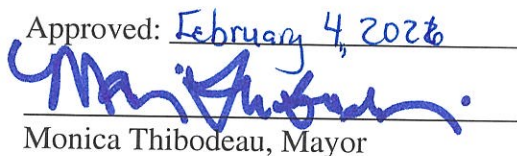 Approved: February 4, 2026
Monica Thibodeau, Mayor